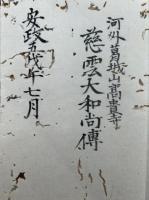 河州葛城山高貴寺
慈雲大和尚傳
安政五戊年七月